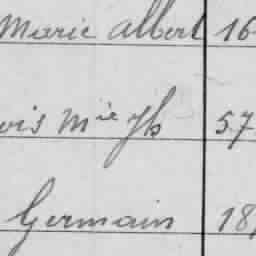 Marie Albert 16
ois Mie Jh 57
Germain 18